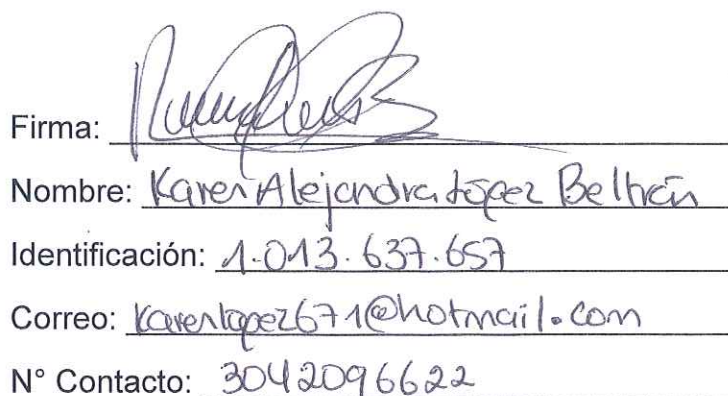 Firma:
Nombre: Karen Alejandra López Beltrán
Identificación: 1.013.637.657
Correo: Karenlopez671@hotmail.com
N° Contacto: 3042096622